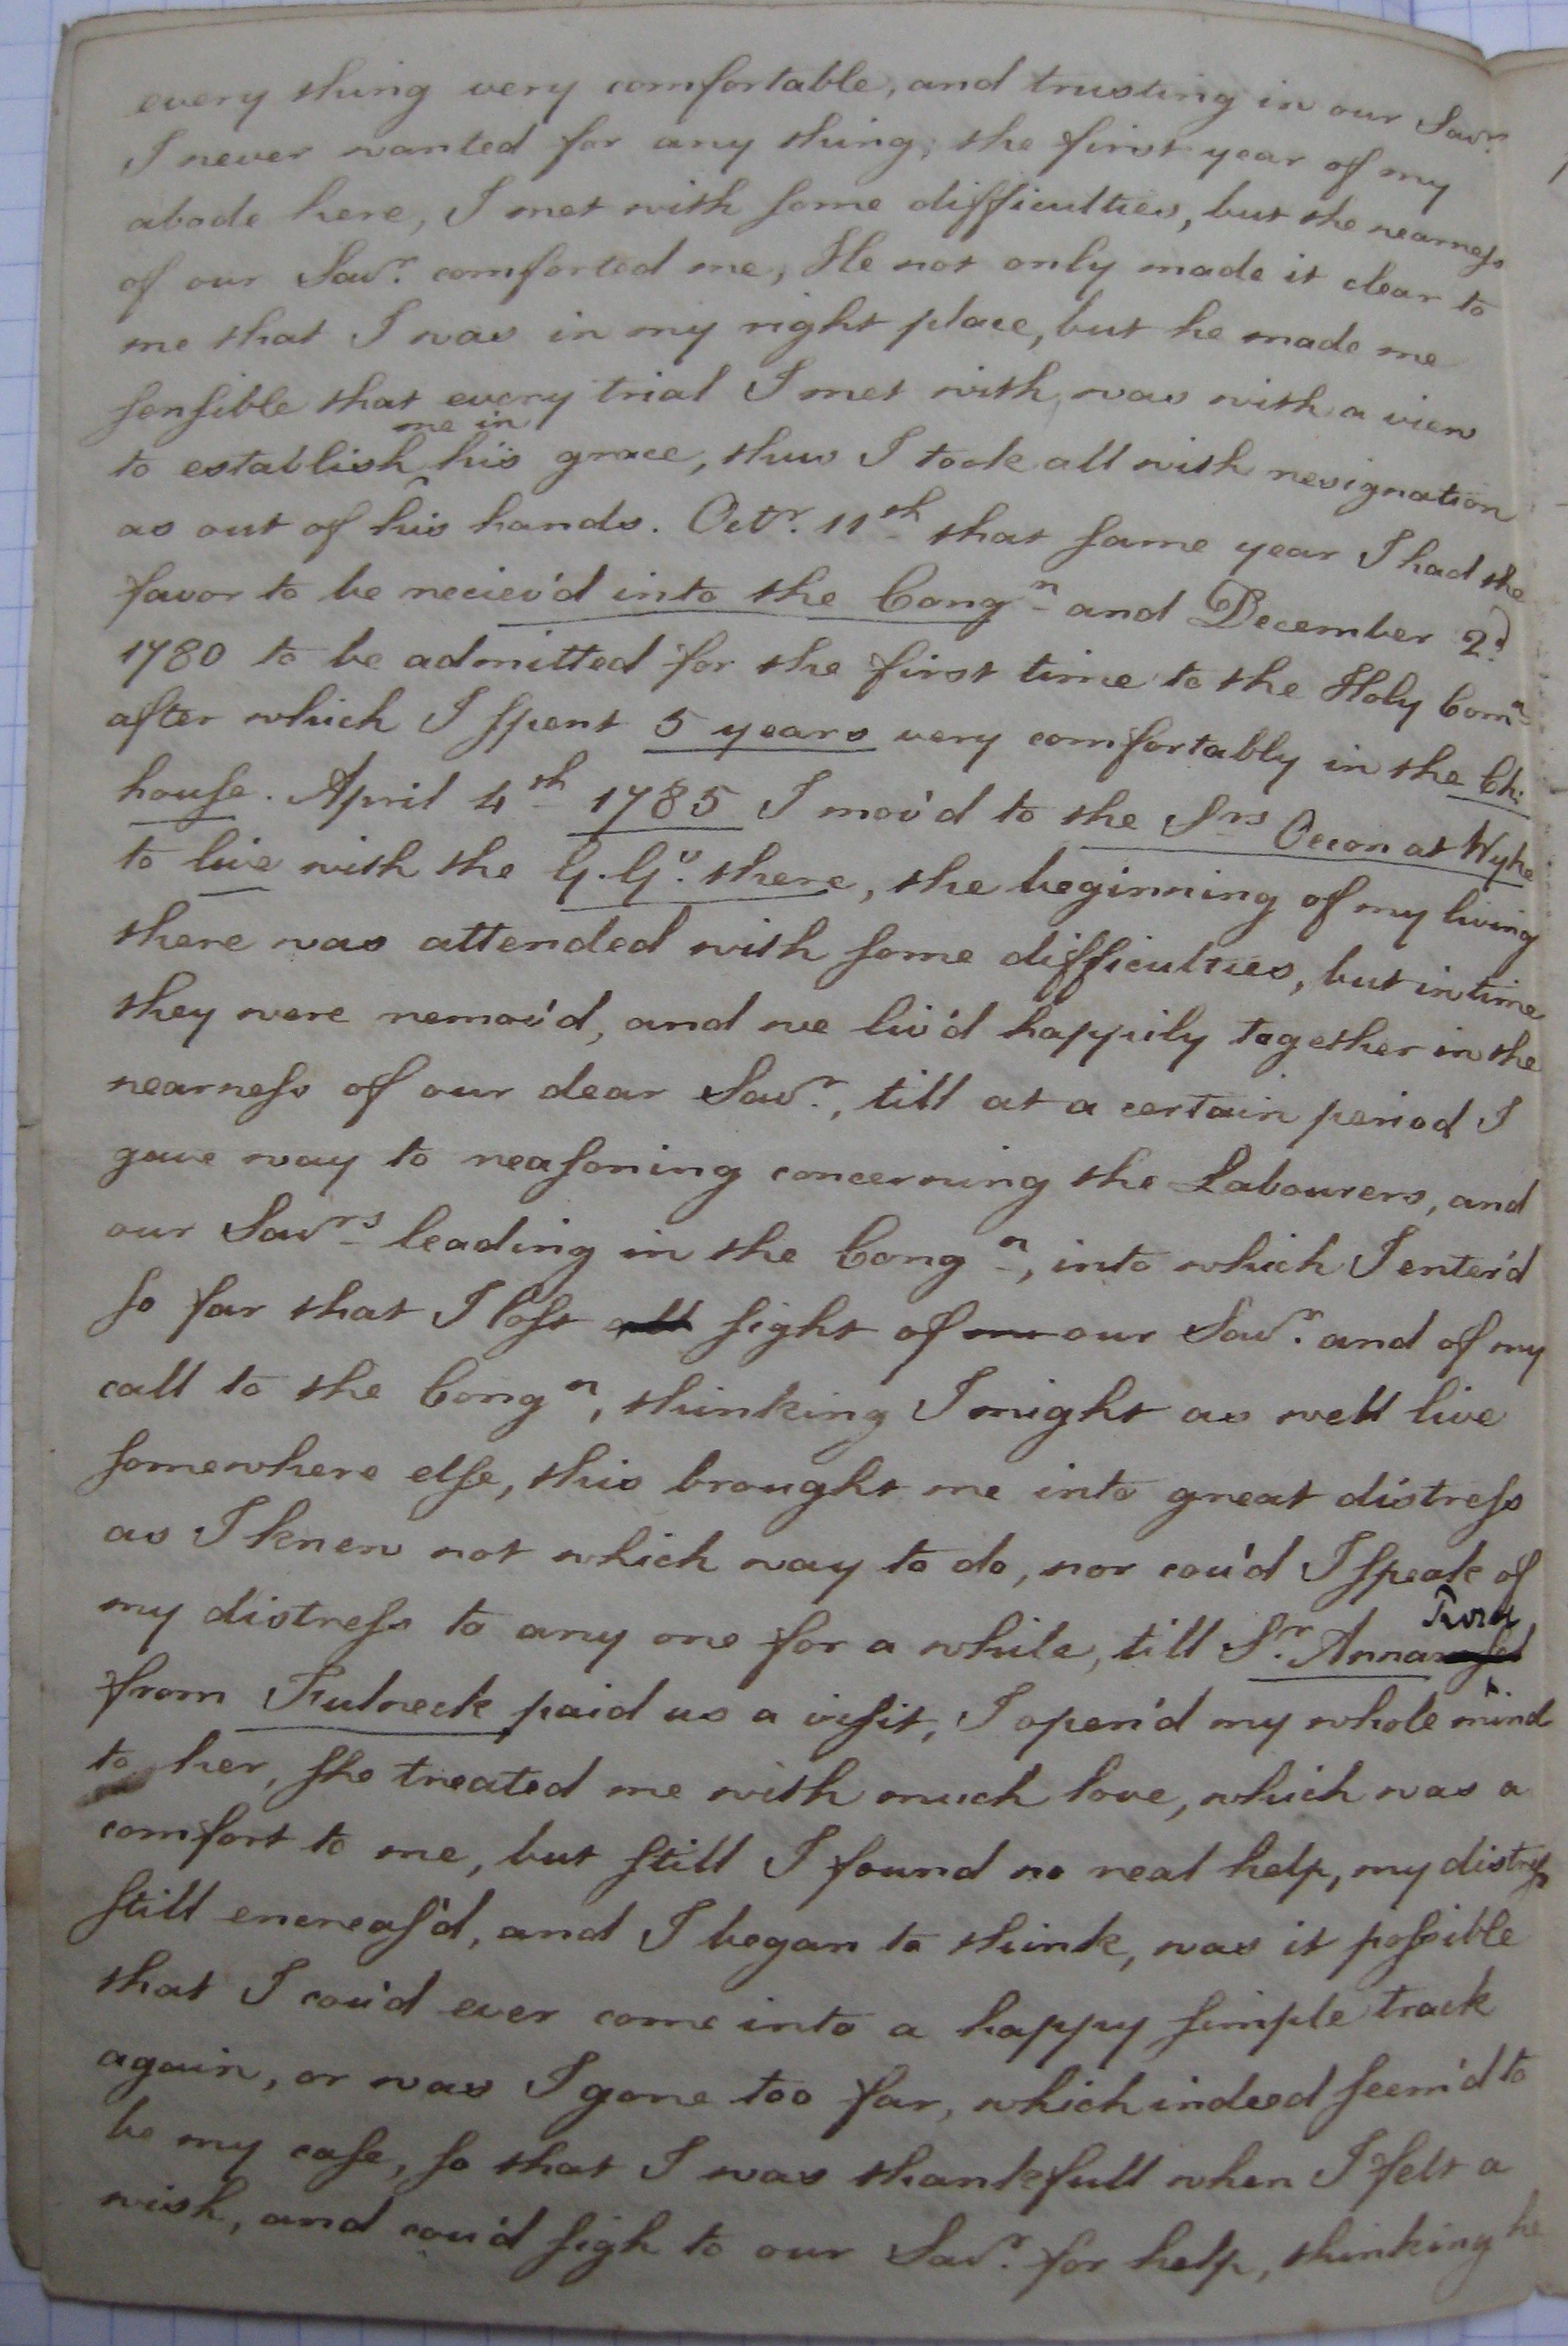 every thing very comfortable, and trusting in our Savr.
I never wanted for any thing, the first year of my
abode here, I met with some difficulties, but the nearness
of our Savr. comforted me, He not only made it clear to
me that I was in my right place, but he made me
sensible that every trial I met with, was with a view
me in
to establish his grace, thus I took all with resignation
as out of his hands. Octr. 11th that same year I had the
favor to be reciev'd into the Congn and December 2d
1780 to be admitted for the first time to the Holy Comn
after which I spent 5 years very comfortably in the Ch:
house. April 4th 1785 I mov'd to the Srs Oecon at Wyke
to live with the G.Gs. there, the beginning of my living
there was attended with some difficulties, but in time
they were remov'd, and we liv'd happily together in the
nearness of our dear Savr., till at a certain period I
gave way to reasoning concerning the Labourers, and
our Savrs leading in the Congn, into which I enter'd
so far that I lost all sight of our Savr. and of my
call to the Congn, thinking I might as well live
somewhere else, this brought me into great distress
as I knew not which way to do, nor cou'd I speak of
my distress to any one for a while, till Sr. Anna
from Fulneck paid us a visit, I open'd my whole mind
to her, she treated me with much love, which was a
comfort to me, but still I found no real help, my distress
still encreas'd, and I began to think, was it possible
that I cou'd ever come into a happy simple track
again, or was I gone too far, which indeed seem'd to
be my case, so that I was thankfull when I felt a
wish, and cou'd sigh to our Savr. for help, thinking he